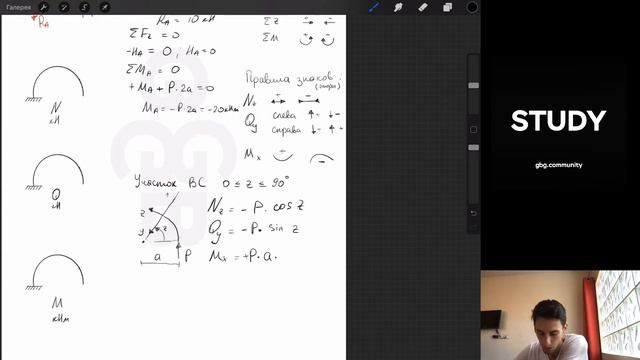 Галерея
RA
RA = 10 кН
ΣFz = 0
-HA = 0 ; HA=0
ΣMA = 0
+MA + P·2a = 0
MA = -P·2a = -20кНм
Σz
ΣM
Правила знаков :
(эпюры)
N
+ -
Qy
слева
справа
Mx
+ -
N
кН
Q
кН
M
кНм
Участок BC 0 ≤ z ≤ 90°
Nz = -P · cos z
Qy = -P · sin z
Mx = +P·a·
z
y
z
a
P
STUDY
gbg.community
GBG